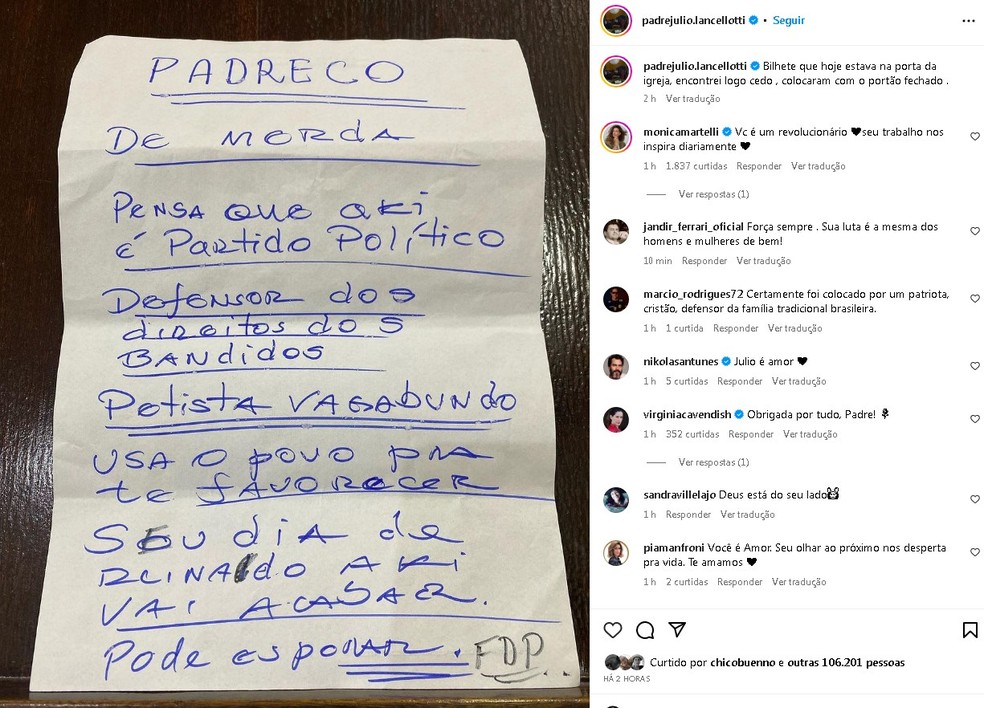 PADRECO
DE MERDA
PENSA QUE AKI
É PARTIDO POLÍTICO
DEFENSOR DOS
DIREITOS DOS
BANDIDOS
PETISTA VAGABUNDO
USA O POVO PRA
TE FAVORECER
SEU DIA DE
REINALDO AKI
VAI ACABAR.
PODE ESPERAR. FDP..
padrejulio.lancellotti • Seguir
padrejulio.lancellotti Bilhete que hoje estava na porta da
igreja, encontrei logo cedo , colocaram com o portão fechado .
2 h Ver tradução
monicamartelli Vc é um revolucionário ❤seu trabalho nos
inspira diariamente ❤
1 h 1.837 curtidas Responder Ver tradução
Ver respostas (1)
jandir_ferrari_oficial Força sempre . Sua luta é a mesma dos
homens e mulheres de bem!
10 min Responder Ver tradução
marcio_rodrigues72 Certamente foi colocado por um patriota,
cristão, defensor da família tradicional brasileira.
1 h 1 curtida Responder Ver tradução
nikolasantunes Julio é amor ❤
1 h 5 curtidas Responder Ver tradução
virginiacavendish Obrigada por tudo, Padre! 🌹
1 h 352 curtidas Responder Ver tradução
Ver respostas (1)
sandravillelajo Deus está do seu lado
1 h Responder Ver tradução
piamanfroni Você é Amor. Seu olhar ao próximo nos desperta
pra vida. Te amamos ❤
1 h 2 curtidas Responder Ver tradução
Curtido por chicobuenno e outras 106.201 pessoas
HÁ 2 HORAS